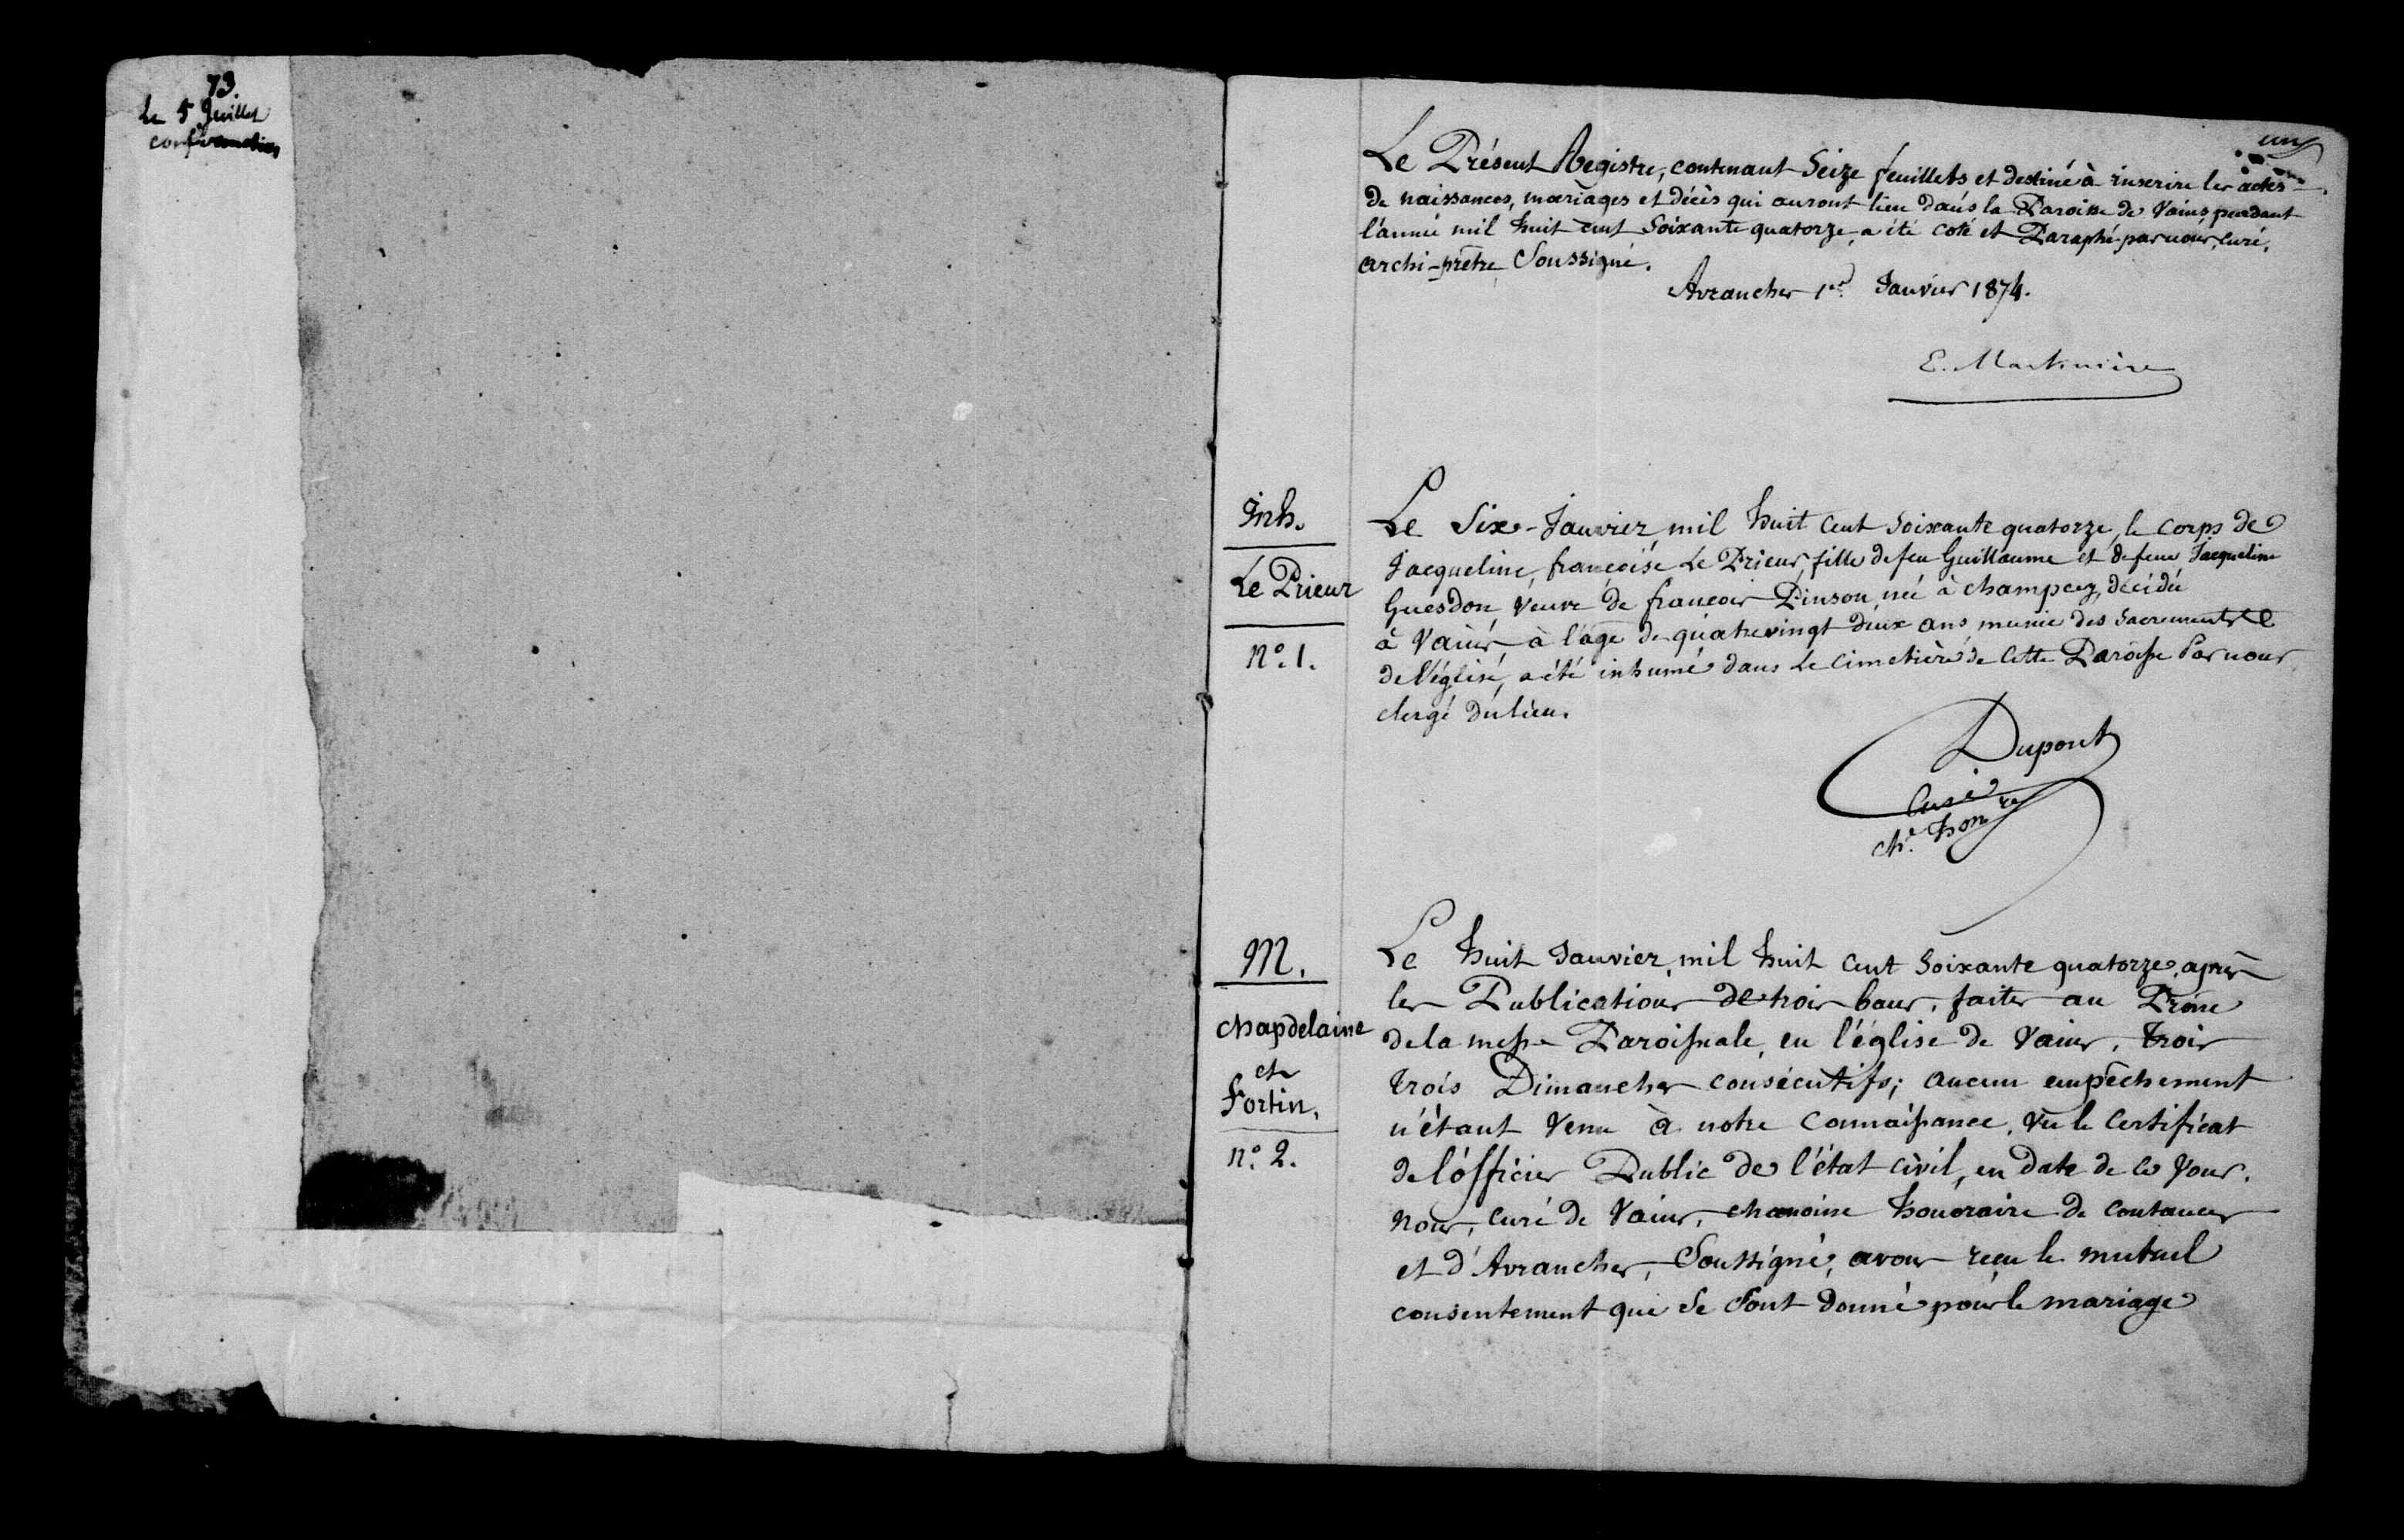 73.
Le 5 Juillet
confirmation
un
Le Présent Registre, contenant Seize feuillets et destiné à inscrire les actes
de naissances, mariages et décès qui auront lieu dans la Paroisse de Vains, pendant
l'année mil huit cent soixante quatorze, a été coté et Paraphé par nous, curé,
archi-prêtre Soussigné.
Avranches 1er Janvier 1874.
E. Martinière
Inh.
Le Prieur
N°. 1.
Le Six Janvier, mil huit cent soixante quatorze, le corps de
Jacqueline, françoise Le Prieur, fille de feu Guillaume et de feue Jacqueline
Guesdon, veuve de françois Pinson, née à champcey, décédée
à Vains, à l'âge de quatrevingt deux ans munie des sacrements
de l'église, a été inhumé dans le cimetière de cette Paroisse Par nous
clergé du lieu.
Dupont
Curé
ch. hon re
M.
chapdelaine
et
fortin.
n°. 2.
Le huit Janvier, mil huit cent soixante quatorze, après
les Publications de trois bans, faites au Prône
de la messe Paroissiale, en l'église de Vains, trois
trois Dimanches consécutifs; aucun empêchement
n'étant venu à notre connaissance, vu le certificat
de l'officier Public de l'état civil, en date de ce jour,
nous, curé de Vains, chanoine honoraire de coutances
et d'Avranches, Soussigné, avons reçu le mutuel
consentement que se sont donné pour le mariage